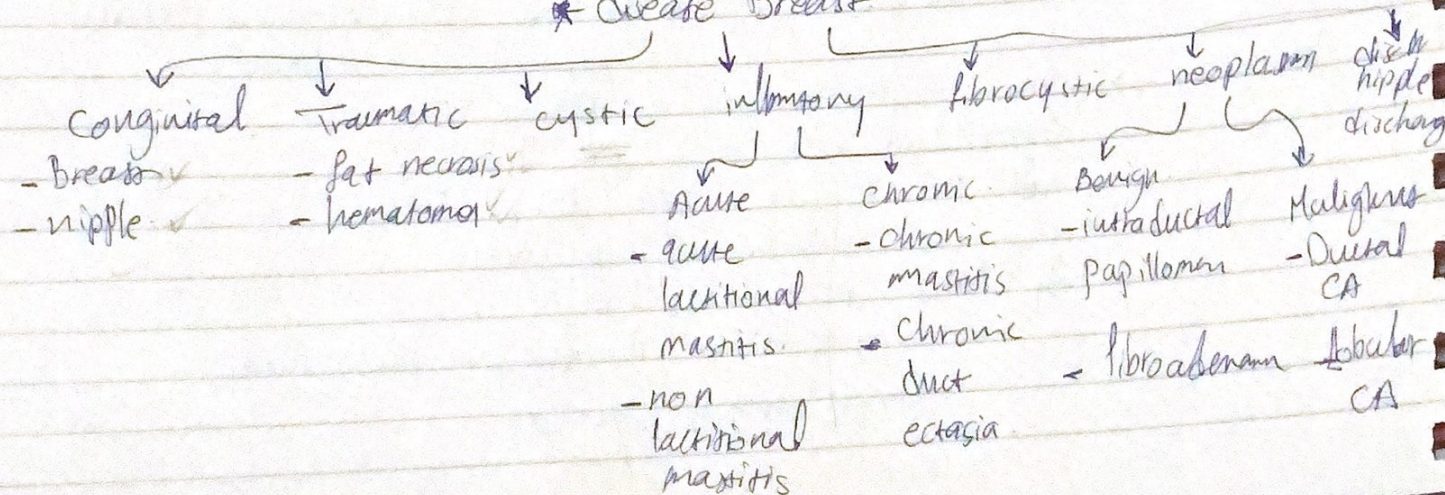 * Disease Breast
Conginital
- Breast
- nipple
Traumatic
- fat necrosis
- hematoma
cystic
inflmmtory
Acute
- acute
lactitional
mastitis
- non
lactitional
mastitis
chronic
- chronic
mastitis
- chronic
duct
ectasia
fibrocystic
neoplasm
Benign
- intraductal
papilloma
- fibroadenoma
Malignant
- Ductal
CA
- lobular
CA
nipple
discharg